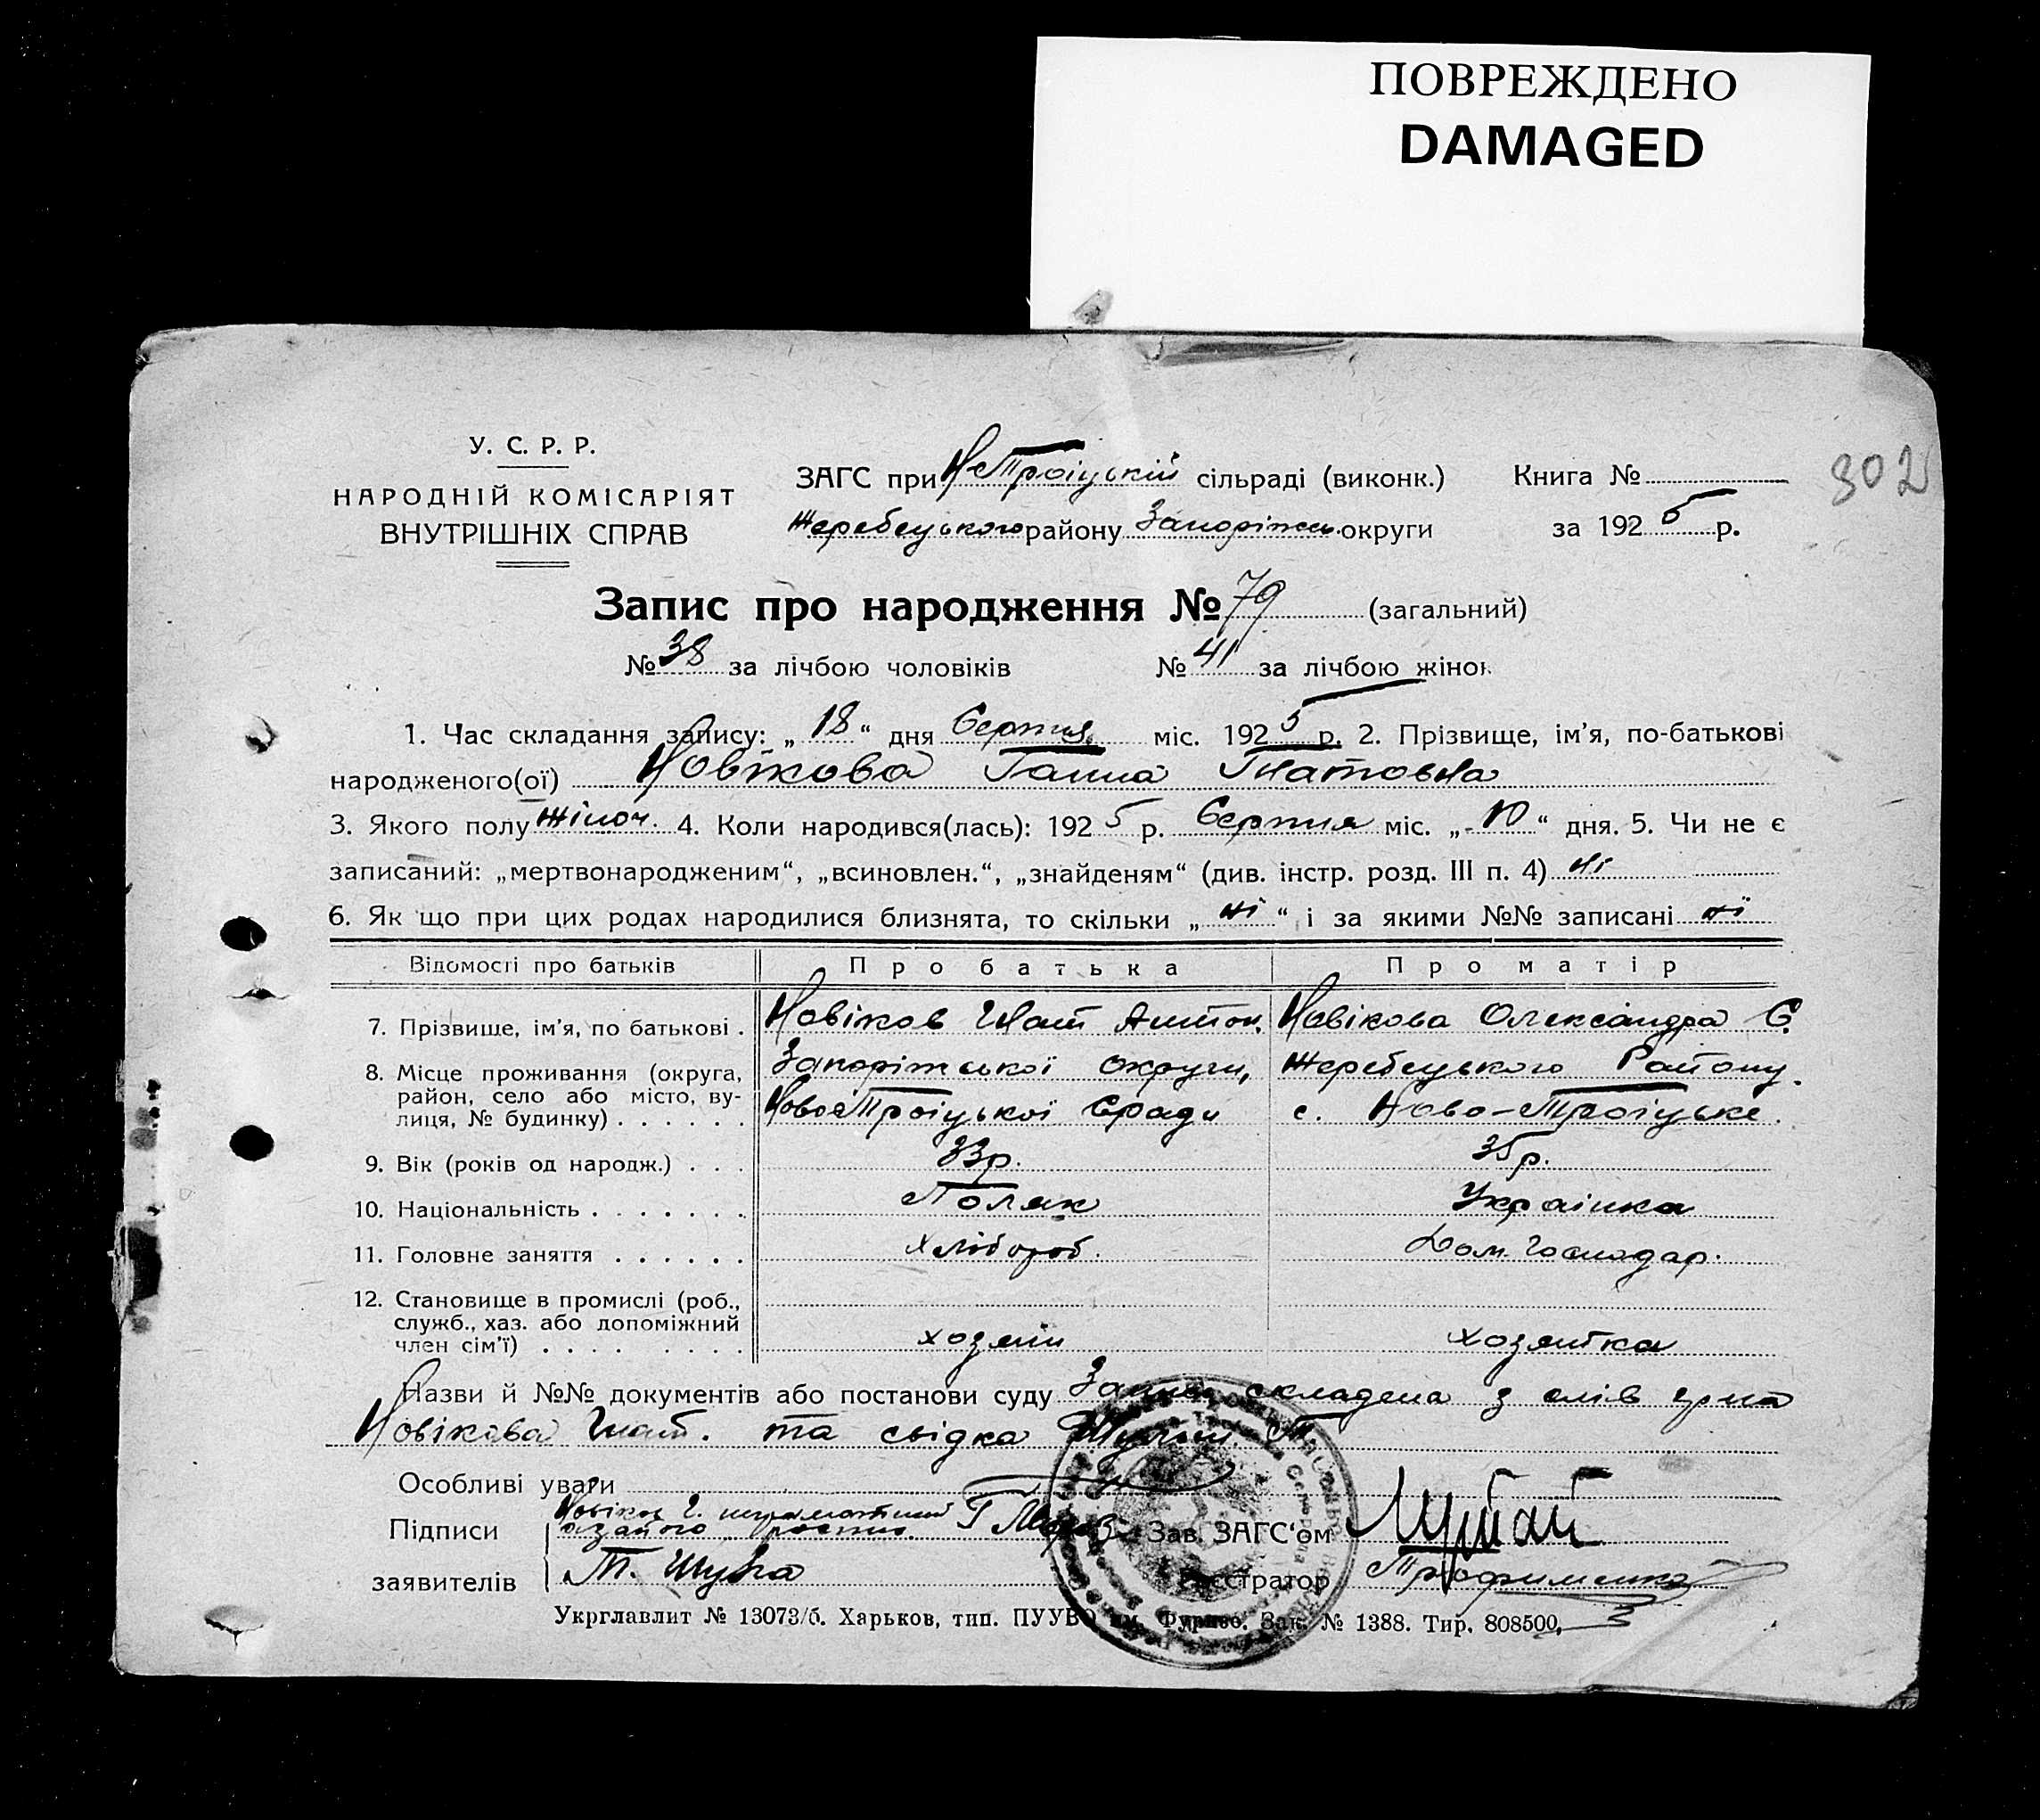 ПОВРЕЖДЕНО
DAMAGED
302
У. С. Р. Р.
НАРОДНІЙ КОМІСАРІЯТ
ВНУТРІШНІХ СПРАВ
ЗАГС при Н Троіцькій сільраді (виконк.) Книга №
Жеребецького району Запоріжсь. округи за 1925 р.
Запис про народження № 79 (загальний)
№ 38 за лічбою чоловіків № 41 за лічбою жінок
1. Час складання запису: „18“ дня Серпня міс. 1925 р. 2. Прізвище, ім’я, по-батькові
народженого(ої) Новікова Ганна Гнатовна
3. Якого полу жіноч. 4. Коли народився(лась): 1925 р. Серпня міс. „10“ дня. 5. Чи не є
записаний: „мертвонародженим“, „всиновлен.“, „знайденям“ (див. інстр. розд. III п. 4) ні
6. Як що при цих родах народилися близнята, то скільки „ні“ і за якими №№ записані ні
Відомості про батьків Про батька Про матір
7. Прізвище, ім’я, по батькові . Новіков Гнат Антон. Новікова Олександра Є.
8. Місце проживання (округа, Запоріжської округи, Жеребецького Району.
район, село або місто, ву-
лиця, № будинку) . . . . . . Ново Троіцької Сради с. Ново-Троіцьке.
9. Вік (років од народж.) . . . 33р. 35р.
10. Національність . . . . . . . Поляк Українка
11. Головне заняття . . . . . . Хлібороб. Дом. Господар.
12. Становище в промислі (роб.,
служб., хаз. або допоміжний
член сім’ї) . . . . . . . . хозяїн хозяйка
Назви й №№ документів або постанови суду Запис складена з слів гр-на
Новікова Гнат. та свідка Т.
Особливі уваги
Новіков Г. неграмотний
Підписи за його Зав. ЗАГС‘ом
заявителів Т. Шульга Реєстратор Трофименко
Укрглавлит № 13073/б. Харьков, тип. ПУУВО им. Фрунзе. Зак. № 1388. Тир. 808500.